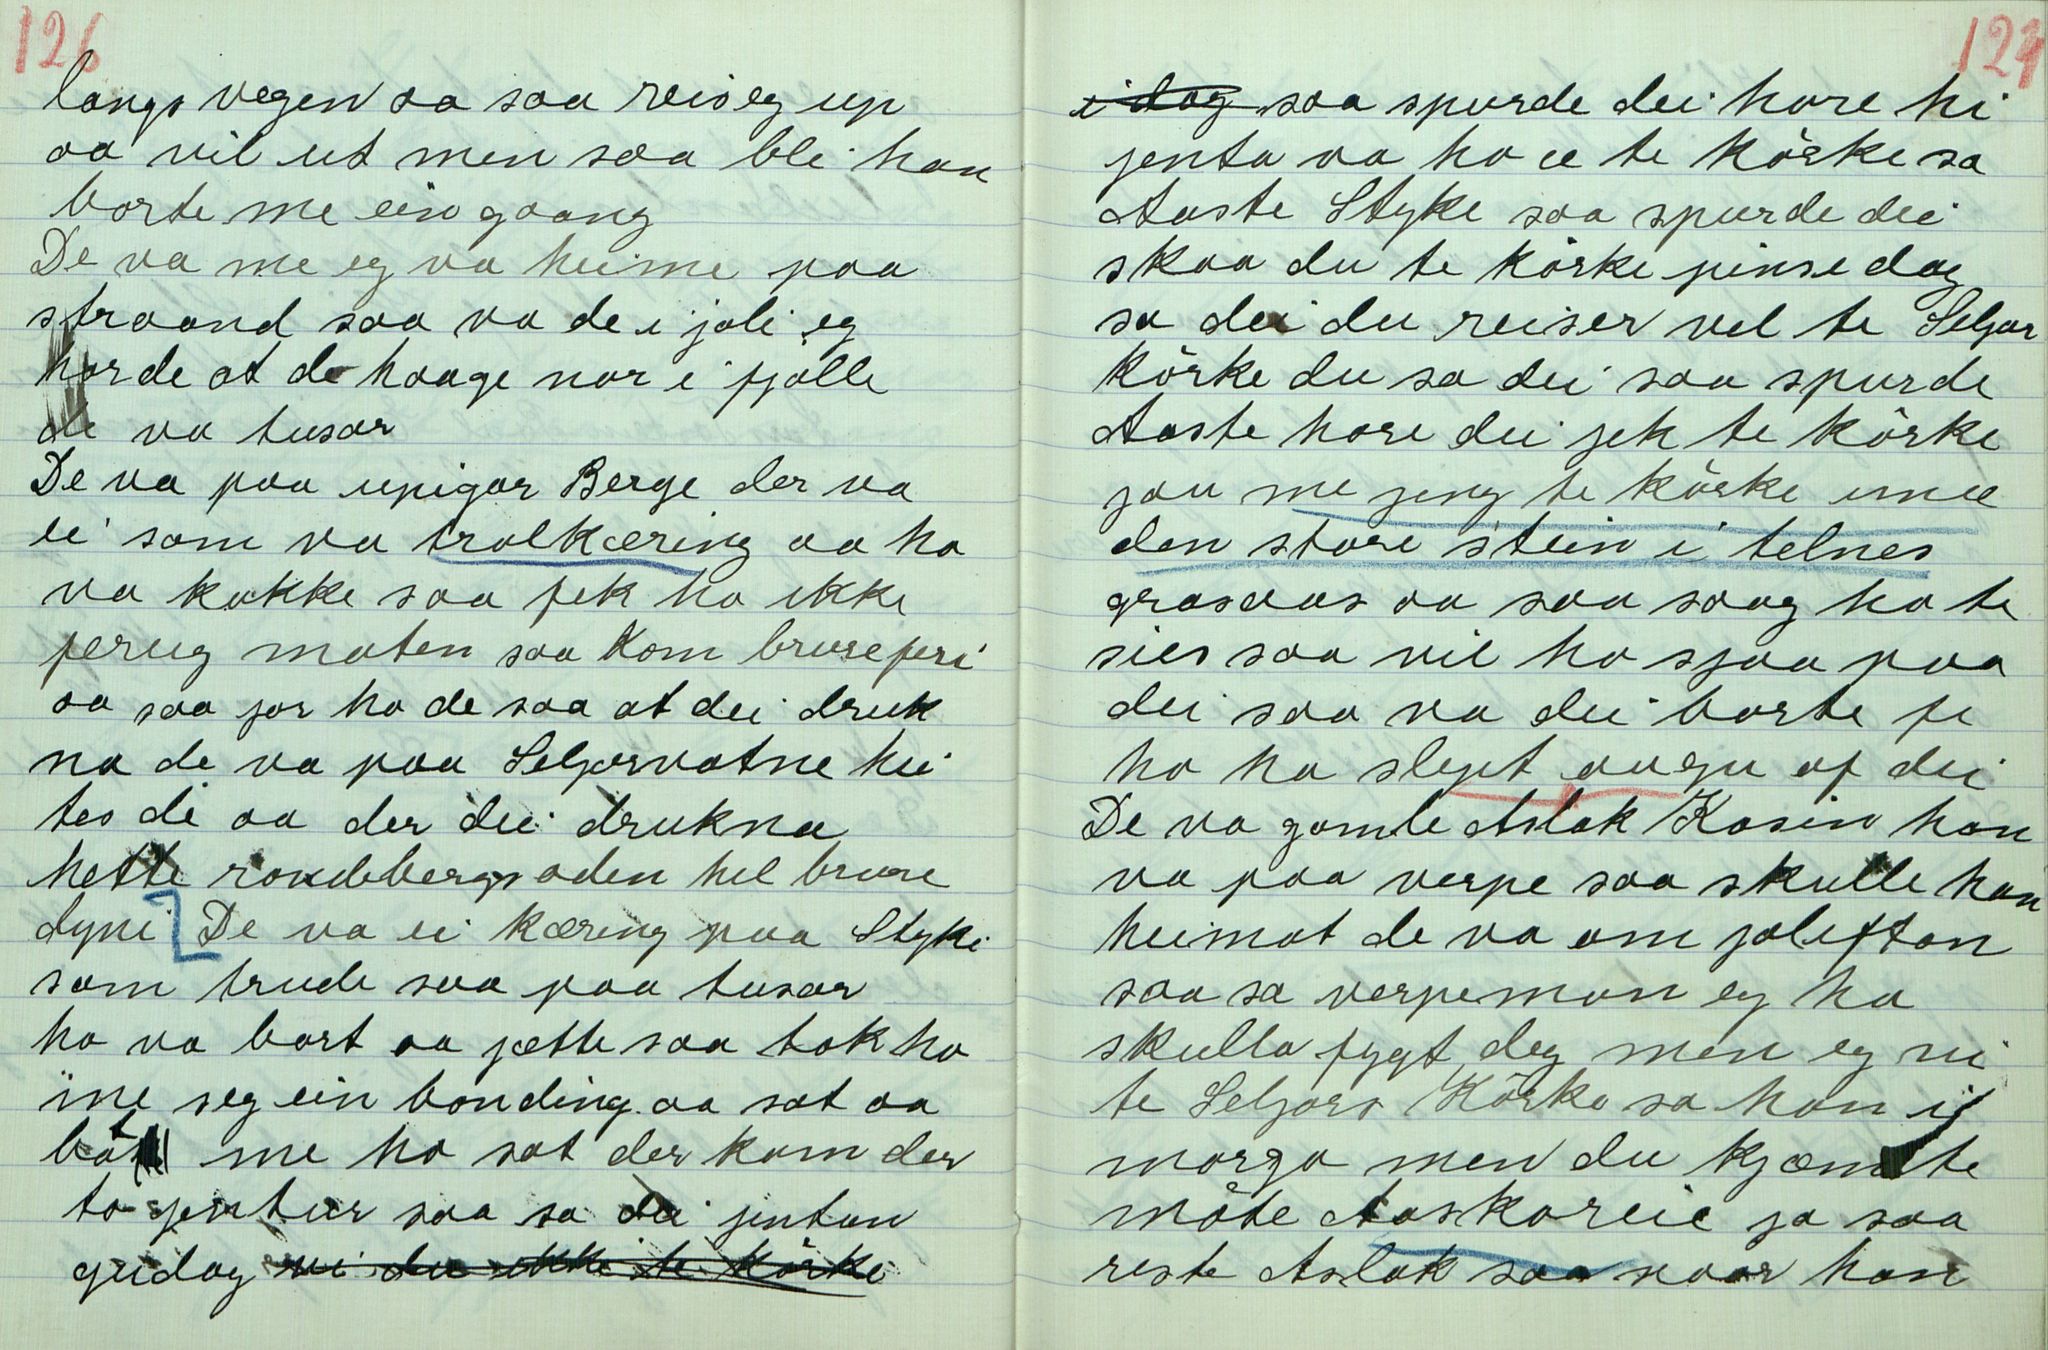 126
langs vegen aa saa reis eg up
aa vil ut men saa blei han
borte me ein gaang
De va me eg va heime paa
straand saa va de i joli eg
horde at de haage nor i fjølle
de va tusar
De va paa upigar Berge der va
ei som va trolkæring aa ho
va kokke saa fek ho ikke
ferug maten saa kom brureferi
aa saa jor ho de saa at dei druk
na de va paa Seljorvatne hei
tes di aa der dei drukna
hette rondebergs aden hel brure
dypi De va ei kæring paa Styki
som trude saa paa tusar
ho va bort aa jætte saa tok ho
ine seg ein bonding aa sat aa
bàt me ho sat der kom der
to jentur saa sa dei jentun
gudag vi du ikke te körke
124
i dag saa spurde dei hore hi
jenta va ho æ te körke sa
Aaste Styke saa spurde dei
skaa du te körke pinse dag
sa dei du reiser vel te Seljor
körke du sa dei saa spurde
Aaste hore dei jek te körke
jau me jeng te körke unde
den store stein i telnes
grasaas aa saa saag ho te
sies saa vil ho sjaa paa
dei saa va dei borte fe
ho ha slept augu af dei
De va gamle Aslak Kasin han
va paa verpe saa skulle han
heimat de va om joleftan
saa sa verpeman eg ha
skulla fygt deg men eg ri
te Seljors Körke sa han i
morgo men du kjæm te
möte Aaskoreie ja saa
reste Aslak saa naar han